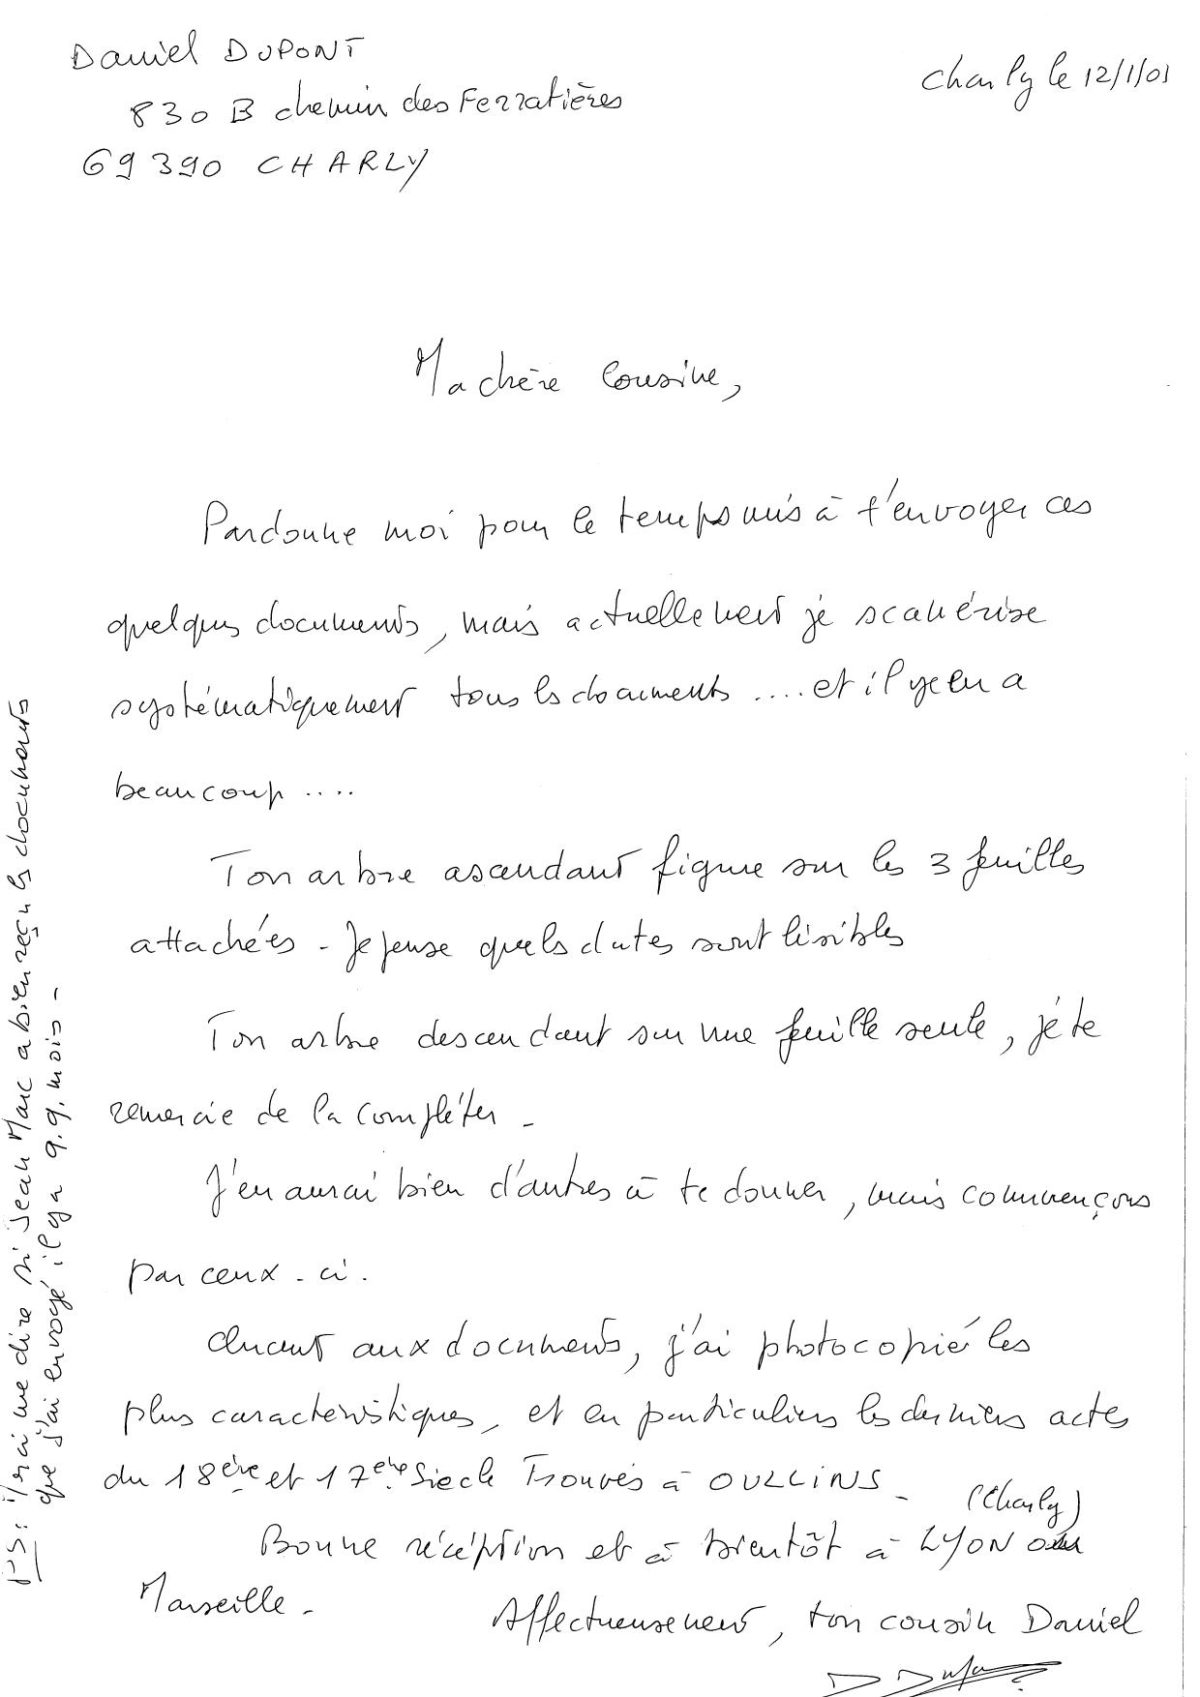 Daniel DUPONT
Charly le 12/1/01
830 B chemin des Ferratières
69390 CHARLY
Ma chère Cousine,
Pardonne moi pour le temps mis à t'envoyer ces
quelques documents, mais actuellement je scanérise
systématiquement tous les documents .... et il y en a
beaucoup ....
Ton arbre ascendant figure sur les 3 feuilles
attachées - Je pense que les dates sont lisibles
Ton arbre descendant sur une feuille seule, je te
remercie de la compléter -
J'en aurai bien d'autres à te donner, mais commençons
par ceux-ci.
Quant aux documents, j'ai photocopié les
plus caractéristiques, et en particuliers les derniers actes
du 18ère et 17ère Siecle Trouvés à OULLINS -
(Charly)
Bonne réception et à bientôt à LYON ou
Marseille -
Affectueusement, ton cousin Daniel
D Dupont
PS: Merci me dire si Jean Marc a bien reçu les documents
que j'ai envoyé il y a q.q. mois -